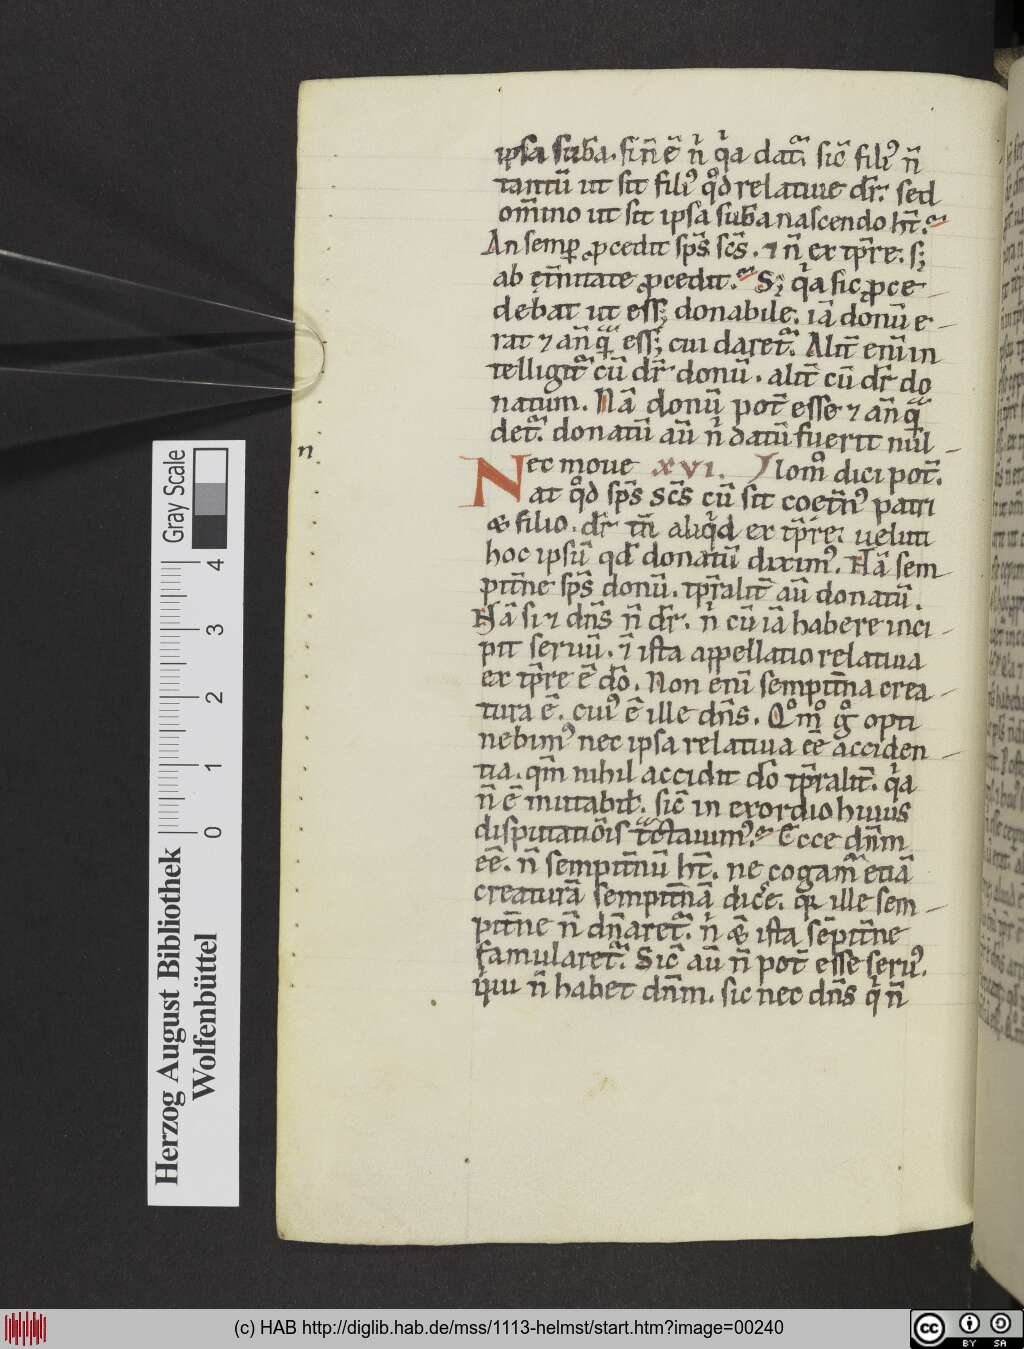 ipsa sub̄a. sin̄ ē n̄ q̓a dat᷑. sic̄ fili᷒ n̄
tantū ut sit fili᷒ qđ relatiue dr̄. sed
om̄ino ut sit ipsa sub̄a nascendo ht̄.
An semꝑ ꝓcedit sp̄s sc̄s. ⁊ n̄ ex tp̄re. sꝫ
ab et̄nitate ꝓcedit. Sꝫ q̓a sic ꝓce
debat ut essꝫ donabile. iā donū e-
rat ⁊ an̄ qͣ essꝫ cui daret᷑. Alit̄ enī in
telligit᷑ cū dr̄ donū. alit̄ cū dr̄ do
natum. Nā donū pot̄ esse ⁊ an̄ qͣ
det᷑. donatū aū n̄ datū fuerit nul̄-
n
Nec moue XVI. lom᷒ dici pot̄.
at qđ sp̄s sc̄s cū sit coet̄n᷒ patri
& filio. dr̄ tn̄ aliq̓d ex tp̄re. ueluti
hoc ipsū qd̄ donatū dixim᷒. Nā sem
pit̄ne sp̄s donū. tp̄ralit̄ aū donatū.
Nā si ⁊ dn̄s n̄ dr̄. n̓ cū iā habere inci-
pit seruū. ⁊̄ ista appellatio relatiua
ex tp̄re ē dō. Non enī sempit̄na crea-
tura ē. cui᷒ ē ille dn̄s. Qͦmͦ gͦ opti
nebim᷒ nec ipsa relatiua eē acciden-
tia. qm̄ nihil accidit dō tp̄ralit̄. q̓a
n̄ ē mutabił. sic̄ in exordio huius
disputatiōis tc̄tauim᷒. Ecce dn̄m
eē. n̄ sempit̄nū ht̄. ne cogam᷑ etiā
creaturā sempit̄nā dic̄e. qr̄ ille sem-
pit̄ne n̄ dn̄aret᷑. n̓ & ista sēpit̄ne
famularet᷑. Sic̄ aū n̄ pot̄ esse seru᷒.
q̓ui n̄ habet dn̄m. sic nec dn̄s q̓ n̄
Gray Scale
4
3
2
1
0
Herzog August Bibliothek
Wolfenbüttel
(c) HAB http://diglib.hab.de/mss/1113-helmst/start.htm?image=00240
cc
BY SA